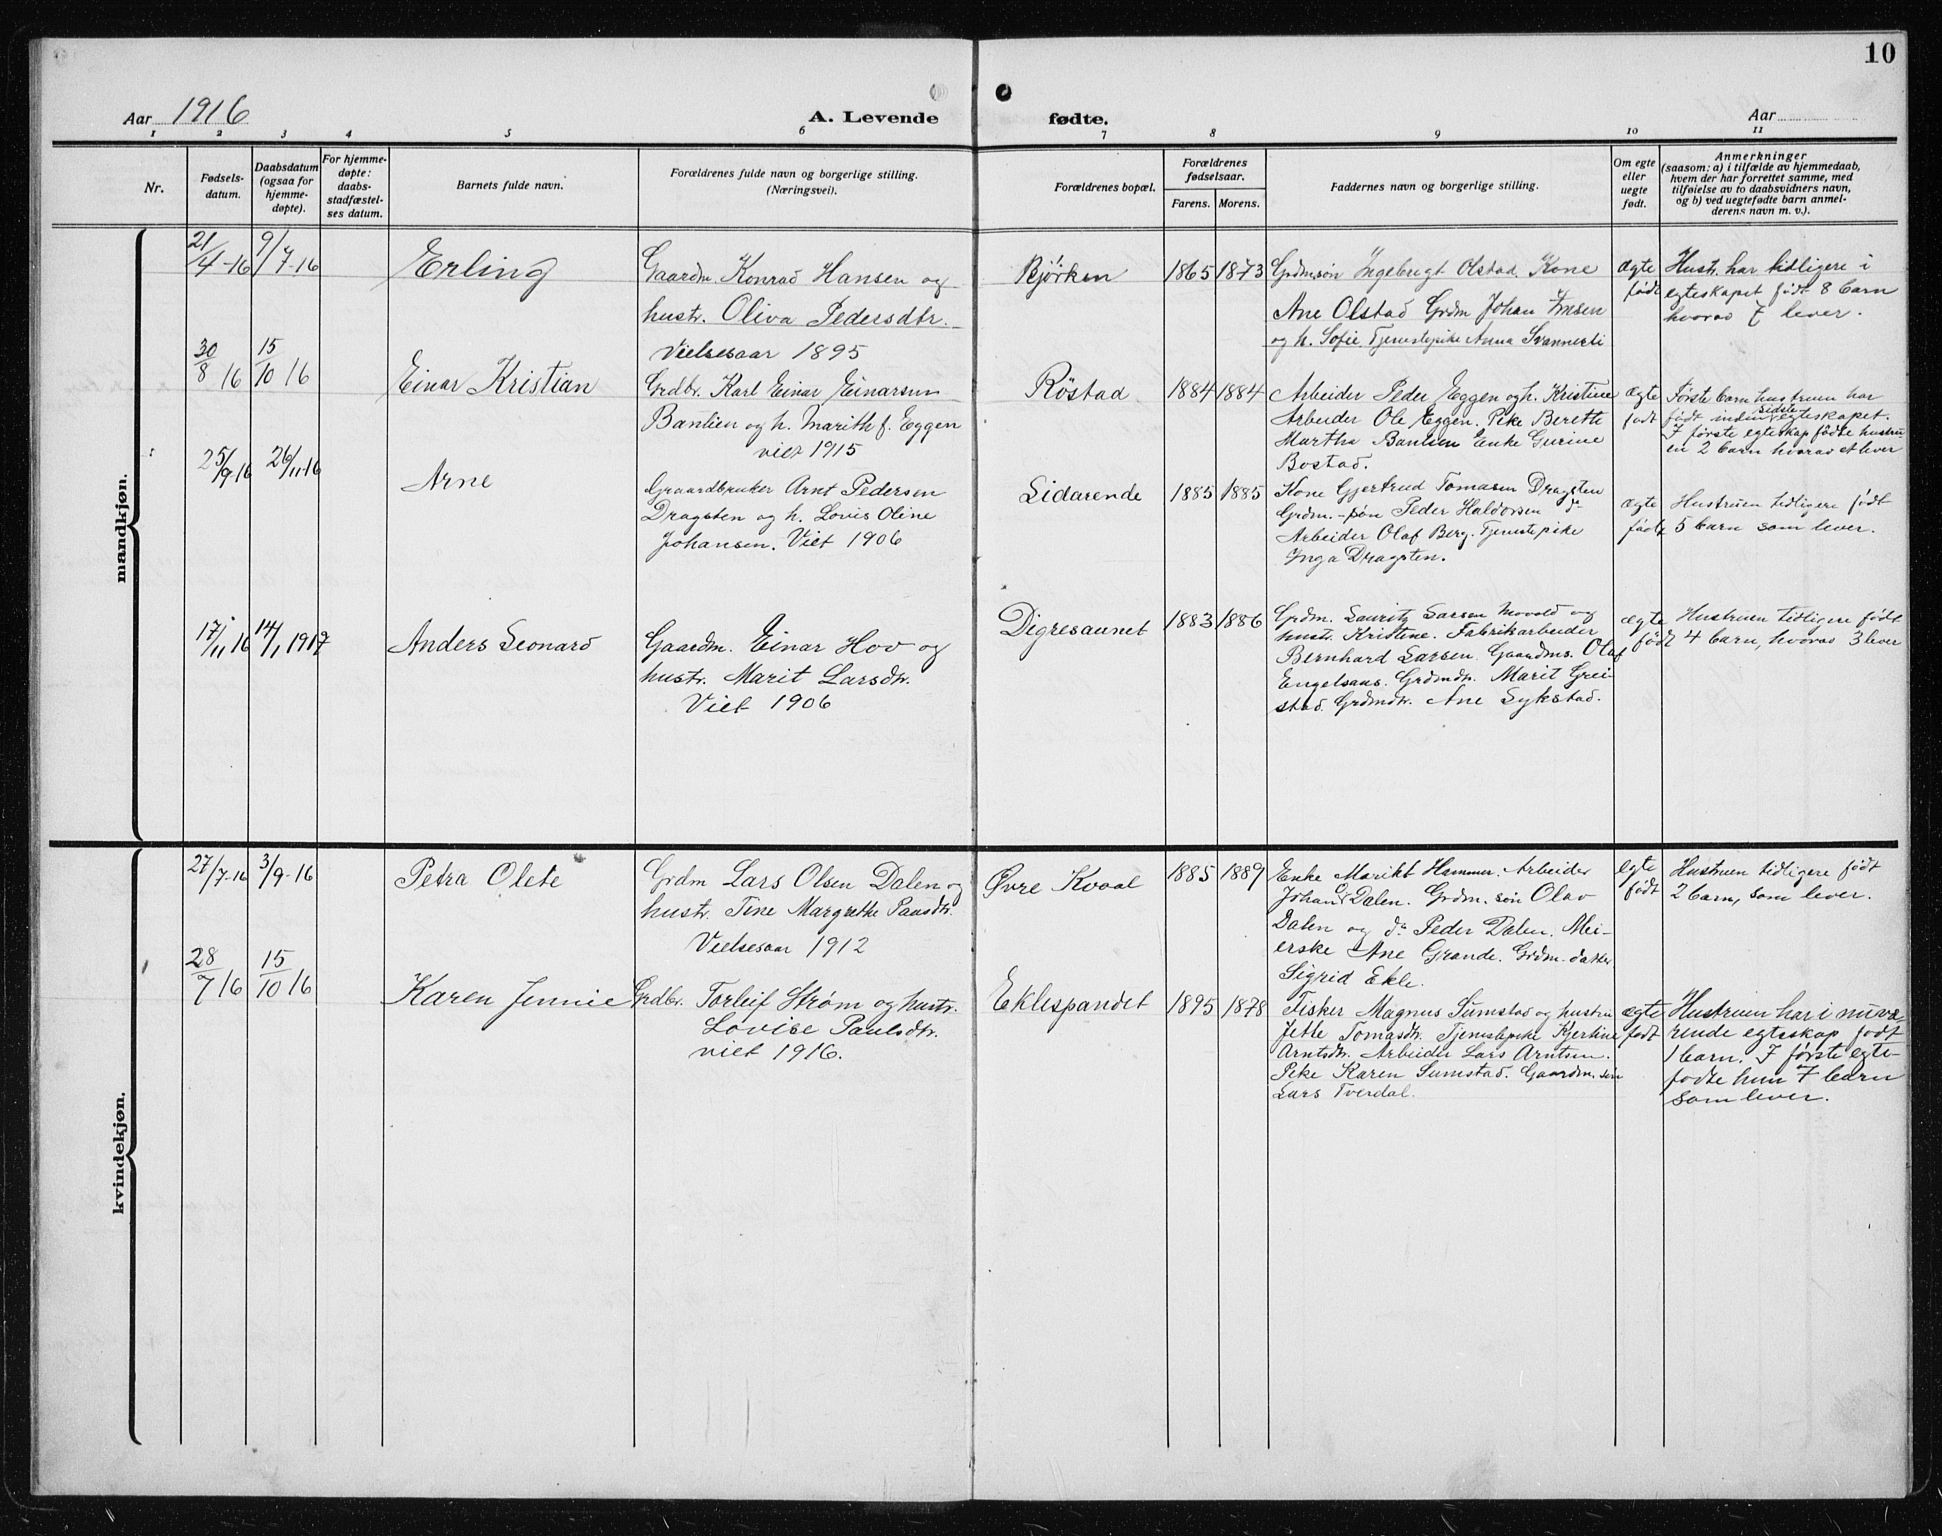 10
Aar 1916
A. Levende fødte.
Aar
1 2 3 4 5 6 7 8 9 10 11
Nr.
Fødsels-
datum.
Daabsdatum
(ogsaa for
hjemme-
døpte).
For hjemme-
døpte:
daabs-
stadfæstel-
ses datum.
Barnets fulde navn.
Forældrenes fulde navn og borgerlige stilling.
(Næringsvei).
Forældrenes bopæl.
Forældrenes
fødselsaar.
Farens. Morens.
Faddernes navn og borgerlige stilling.
Om egte
eller
uegte
født.
Anmerkninger
(saasom: a) i tilfælde av hjemmedaab,
hvem der har forrettet samme, med
tilføielse av to daabsvidners navn,
og b) ved uegtefødte barn anmel-
derens navn m. v.).
mandkjøn.
21/4-16
9/7-16
Erling
Gaardm. Konrad Hansen og
hustr. Oliva Pedersdtr.
Vielsesaar 1895
Bjørken
1865
1873
Grdmsøn Ingebrigt Olstad Kone
Ane Olstad Grdm Johan
og h. Sofie Tjenestepike Anna
ægte
født
Hustr. har tidligere i
egteskapet født 8 barn
hvorav 7 lever.
30/8 16
15/10 16
Einar Kristian
Grdbr. Karl Einar Einarsen
Banlien og h. Marith f. Eggen
viet 1915
Röstad
1884
1884
Arbeider Peder Eggen og h. Kristine
Arbeider Ole Eggen. Pike Berette
Martha Banlien Enke Gurine
Bostad.
ægte
født
Første barn hustruen har
født inden sidste egteskapet.
I første egteskap fødte hustru-
en 2 barn hvorav et lever
25/9-16
26/11-16
Arne
Graardbruker Arnt Pedersen
Dragsten og h. Lovis Oline
Johansen. Viet 1906
Lidarende
1885
1885
Kone Gjertrud Tomasen Dragsten
Grdm.-søn Peder Haldorsen do
Arbeider Olaf Berg. Tjenestepike
Inga Dragsten.
ægte
født
Hustruen tidligere født
5 barn som lever.
17/11 16
14/1 1917
Anders Leonard
Gaardm. Einar Hov og
hustr. Marit Larsdtr.
Viet 1906
Digresaunet
1883
1886
Grdm. Lauritz Larsen Movold og
hust. Kristine. Fabrikarbeider
Bernhard Larsen. Gaardms. Olaf
Engelsaas. Grdmdtr. Marit Grei-
stad. Grdmdtr. Ane Sykstad.
ægte
født
Hustruen tidligere født
4 barn, hvorav 3 lever
kvindekjøn.
27/7-16
3/9-16
Petra Olete
Grdm Lars Olsen Dalen og
hustr. Tine Margrethe Paulsdtr.
Vielsesaar 1912
Øvre Kvaal
1885
1889
Enke Marikt Hammer. Arbeider
Johan O Dalen. Grdm. søn Olav
Dalen og do Peder Dalen. Mei-
erske Ane Grande. Grdm. datter
Sigrid Ekle.
egte
født
Hustruen tidligere født
2 barn, som lever.
28/7 16
15/10 16
Karen Jennie
Grdbr. Torleif Strøm og hustr.
Lovise Paulsdtr.
viet 1916.
Eklespandet
1895
1878
Fisker Magnus Sumstad og hustru
Jette Tomasdtr. Tjenestepike Kjertine
Arntsdtr. Arbeider Lars Arntsen.
Pike Karen Sumstad. Gaardm. søn
Lars Tverdal.
ægte
født
Hustruen har i nuvæ
rende egteskap født
1 barn. I første egte-
fødte hun 7 barn
som lever.